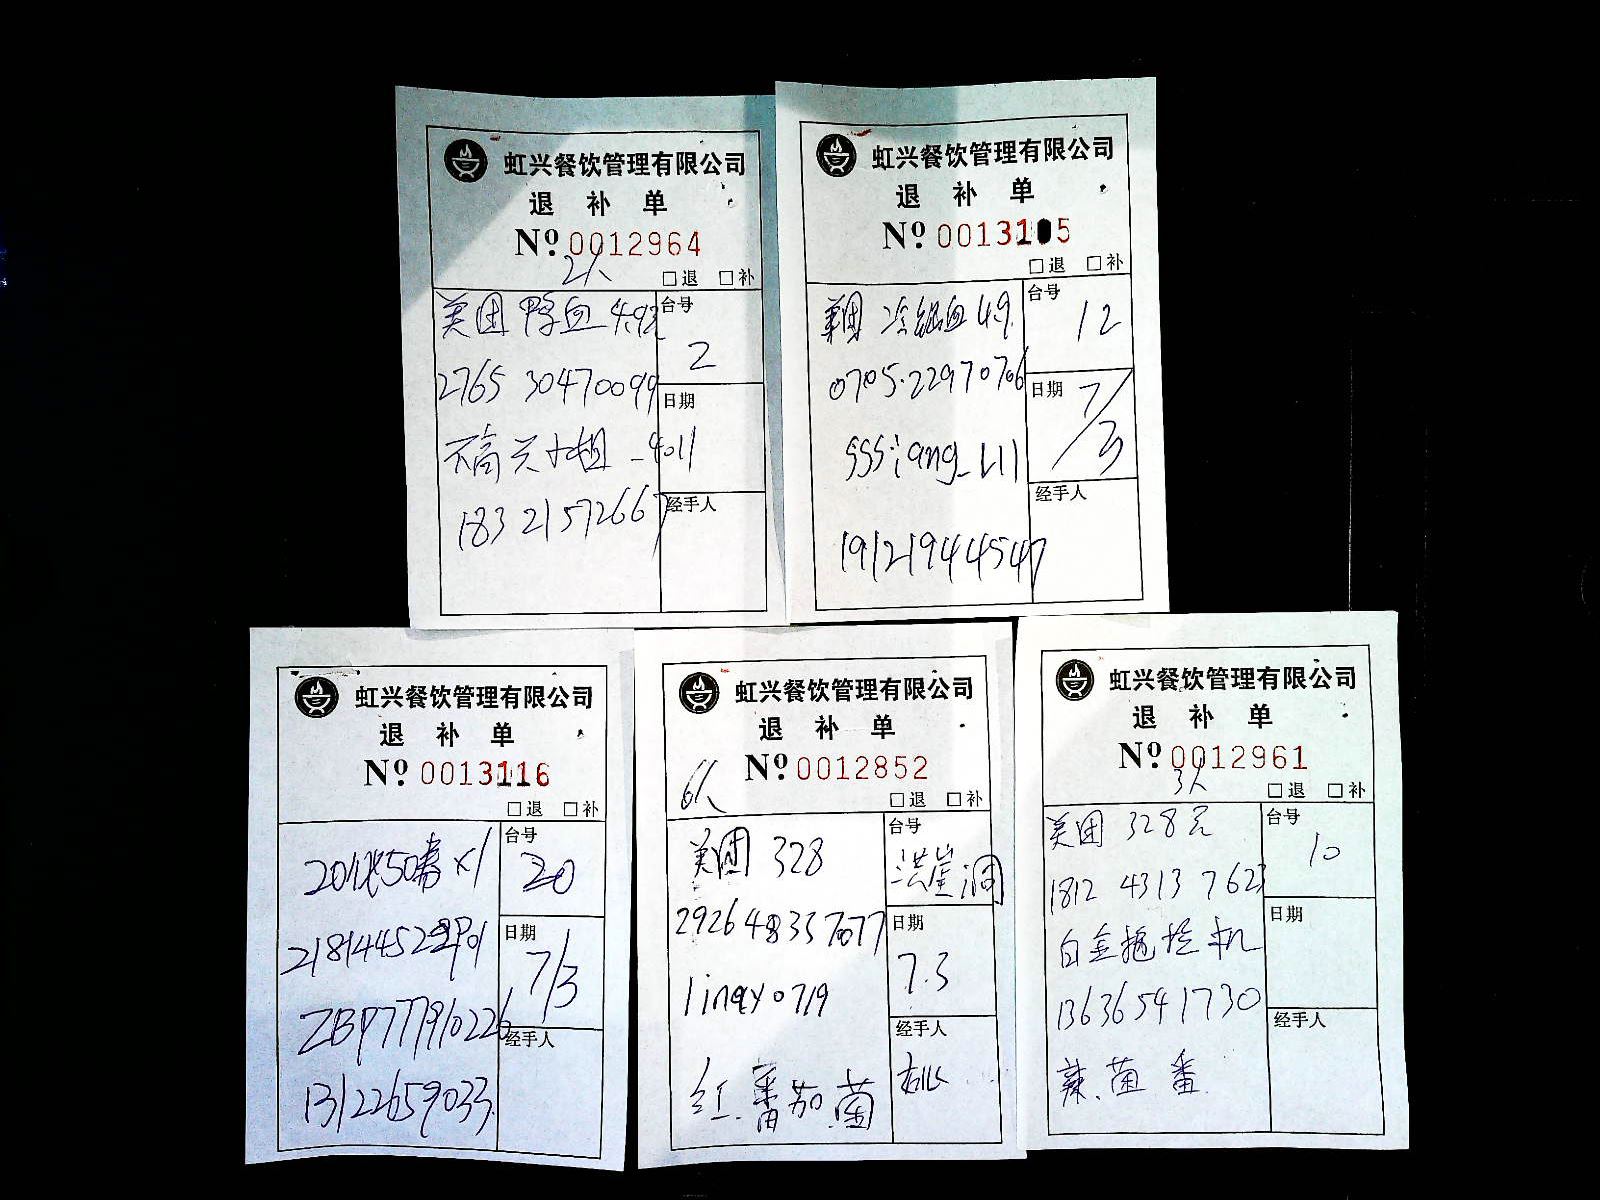 虹兴餐饮管理有限公司
退 补 单
Nº 0012964
2人
□退 □补
美团 鸭血 4.9
2765 30470099
不高兴小姐_4011
18321572667
台号
2
日期
经手人
虹兴餐饮管理有限公司
退 补 单
Nº 0013105
□退 □补
美团 冷锅血 4.9
0705.22970706
sssiang_L11
19121944547
台号
12
日期
7/3
经手人
虹兴餐饮管理有限公司
退 补 单
Nº 0013116
□退 □补
ZBP777910226
13122659033
台号
20
日期
7/3
经手人
虹兴餐饮管理有限公司
退 补 单
Nº 0012852
6人
□退 □补
美团 328
2926
linqy0719
红.番茄.菌
台号
洪崖洞
日期
7.3
经手人
虹兴餐饮管理有限公司
退 补 单
Nº 0012961
3人
□退 □补
美团 328元
1812 4313 7623
白金拖拉机
13636541730
辣.菌 番
台号
10
日期
经手人